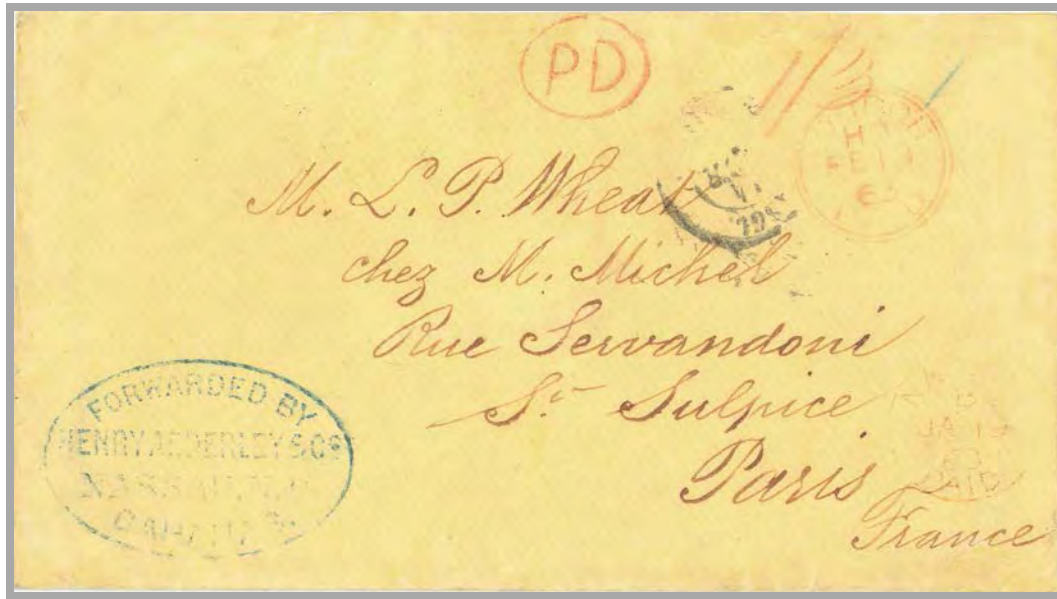 PD
M. L. P. Wheat
chez M. Michel
Rue Servandoni
St Sulpice
Paris
France
FORWARDED BY
HENRY ADDERLEY & Co
NASSAU, N.P.
BAHAMAS.
JA 19
PAID